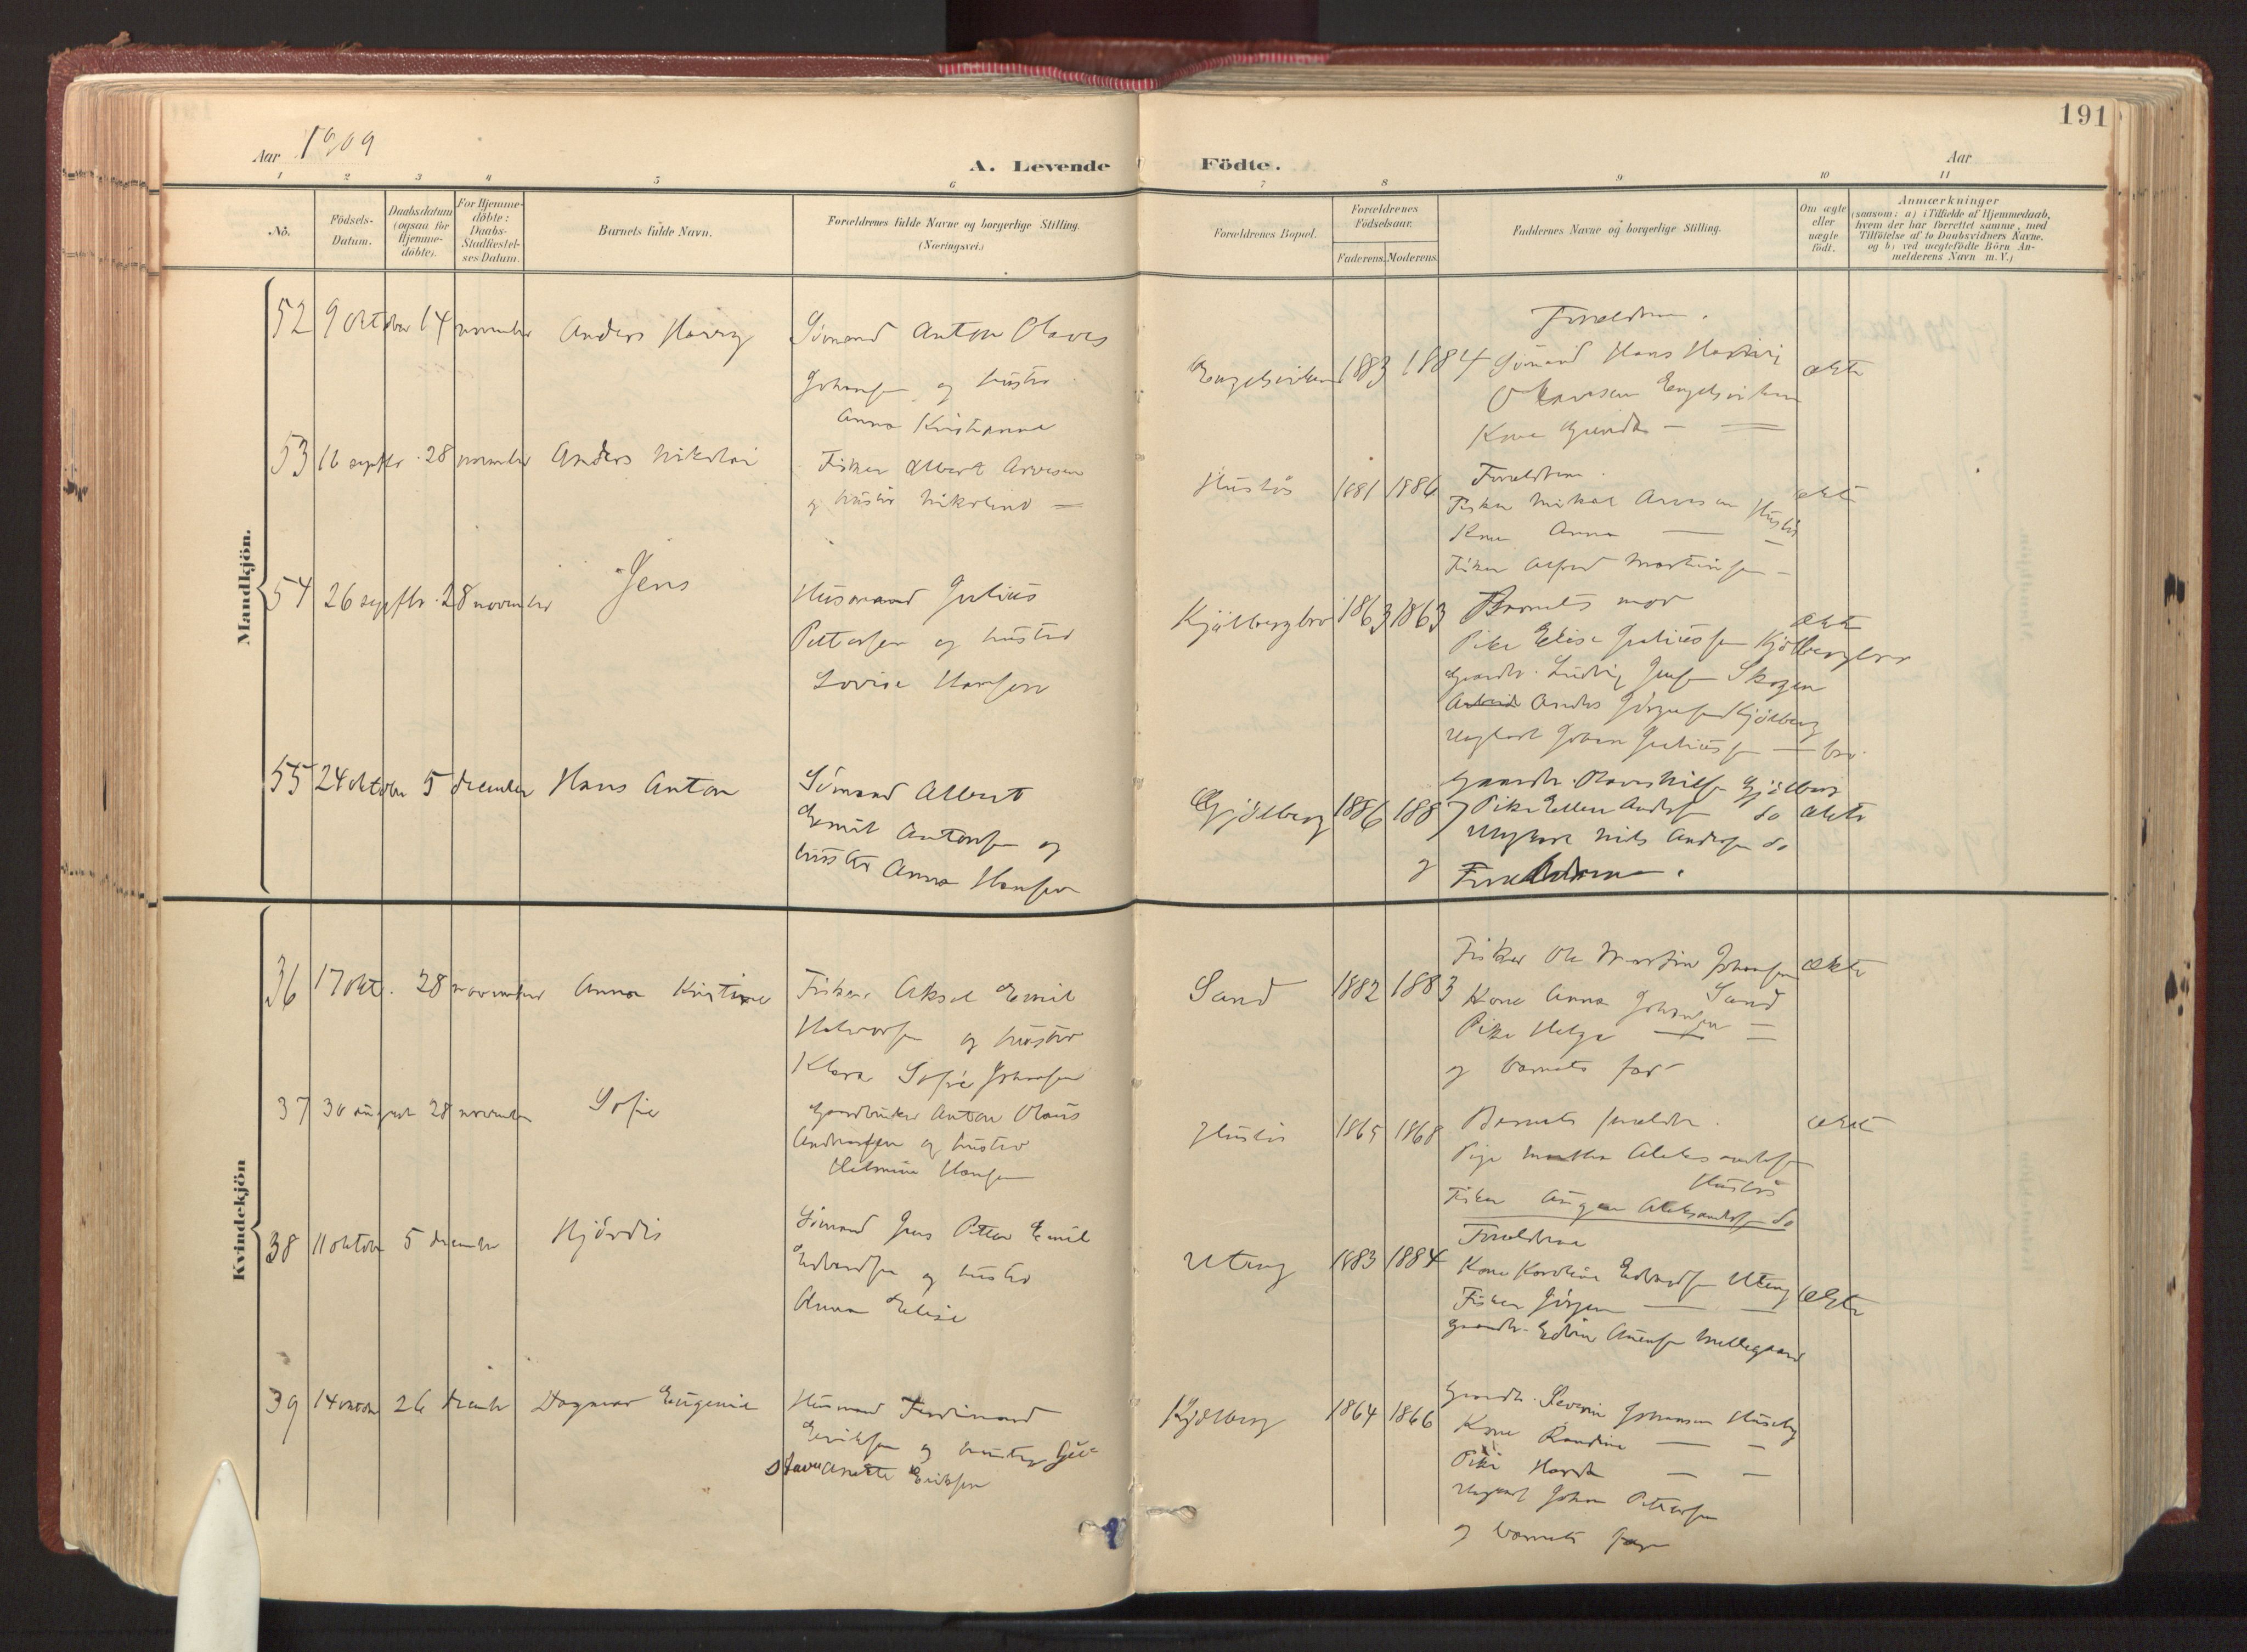 191
Aar 1909
A. Levende Födte.
Aar
1 2 3 4 5 6 7 8 9 10 11
No.
Födsels-Datum.
Daabsdatum (ogsaa for Hjemme-döbte).
For Hjemme-döbte: Daabs-Stadfæstel-ses Datum.
Barnets fulde Navn.
Forældrenes fulde Navne og borgerlige Stilling.
(Næringsvei.)
Forældrenes Bopæl.
Forældrenes Födselsaar.
Faderens. Moderens.
Faddernes Navne og borgerlige Stilling.
Om ægte eller uægte födt.
Anmærkninger
(saasom: a) i Tilfælde af Hjemmedaab,
hvem der har forrettet samme, med
Tilföielse af to Daabsvidners Navne,
og b) ved uægtefödte Börn An-
melderens Navn m. V.)
Mandkjön.
52 9 oktober 14 november Anders Harry
Sömand Anton Olaves
Johansen og hustru
Anna Kristianne
Engelsviken 1883 1884
Forældrene.
Sömand Hans
Engelsviken
Kone
ekte
53 16 septbr. 28 november Anders Nikolai
Fisker Albert Arvesen
og hustru Nikoline —
Huslös 1881 1886
Forældrene.
Fisker Mikal Arvesen Huslös
Kone Anna — —
Fisker Alfred Martinsen —
ekte
54 26 septbr. 28 november Jens
Husmand Julius
Pettersen og hustru
Lovise Hansen
Kjölbergbro 1863 1863
Barnets mor
Pike Elise Juliussen Kjölbergbro
Gaardbr. Ludvig Jensen Skogen
Arbeid Anders Jörgensen Kjölberg
Ungkarl Johan Juliussen — bro.
ekte
55 24 oktober 5 december Hans Anton
Sömand Albert
Emil Antonsen og
hustru Anna Hansen
Kjölberg 1886 1887
Gaardbr. Olaves Nilsen Kjölberg
Pike Ellen Andersen do
Ungkarl Nils Andersen do
og Forældrene.
ekte
Kvindekjön
36 17 okt. 28 november Anna Kristine
Fisker Aksel Emil
Halvorsen og hustru
Klara Sofie Johansen
Sand 1882 1883
Fisker Ole Martin Johansen
Kone Anna Johansen Sand
Pike Helga — —
og barnets far
ekte
37 30 august 28 november Sofie
Gaardbruker Anton Olaus
Andreassen og hustru
Helmine Hansen
Huslös 1865 1868
Barnets foreldre.
Pige Martha Aleksandersen
Huslös
Fisker Aleksandersen do
ekte
38 11 oktober 5 december Hjördis
Sömand Jens Petter Emil
Edvardsen og hustru
Anna Elise
Uteng 1883 1884
Forældrene
Kone Karoline Edvardsen Uteng
Fisker Jörgen — —
Gaardbr. Edvin Mellegaard
ekte
39 14 oktober 26 decembr Dagmar Eugenie
Husmand Ferdinand
Eriksen og hustru Gu-
stava Anette Eriksen
Kjölberg 1864 1866
Gaardbr. Severin Johansen Huseby
Kone Randine — —
Pike — —
Ungkarl Johan Pettersen
og barnets far